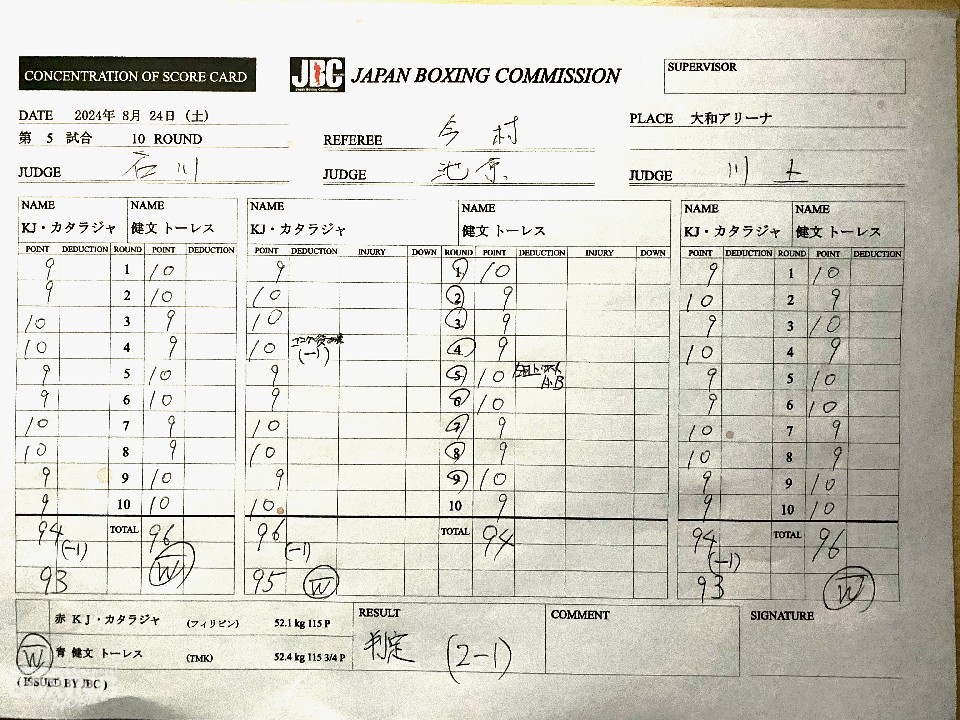 CONCENTRATION OF SCORE CARD
JBC JAPAN BOXING COMMISSION
SUPERVISOR
DATE 2024年 8月 24日 (土)
PLACE 大和アリーナ
第 5 試合 10 ROUND
REFEREE 今村
JUDGE 石川
JUDGE 池原
JUDGE 川上
NAME NAME NAME NAME NAME NAME
KJ・カタラジャ 健文 トーレス KJ・カタラジャ 健文 トーレス KJ・カタラジャ 健文 トーレス
POINT DEDUCTION ROUND POINT DEDUCTION POINT DEDUCTION INJURY DOWN ROUND POINT DEDUCTION INJURY DOWN POINT DEDUCTION ROUND POINT DEDUCTION
9 1 10 9 1 10 9 1 10
9 2 10 10 2 9 10 2 9
10 3 9 10 3 9 9 3 10
10 4 9 10 (-1) 4 9 10 4 9
9 5 10 9 5 10 9 5 10
9 6 10 9 6 10 9 6 10
10 7 9 10 7 9 10 7 9
10 8 9 10 8 9 10 8 9
9 9 10 9 9 10 9 9 10
9 10 10 10 10 9 9 10 10
94 TOTAL 96 96 TOTAL 94 94 TOTAL 96
(-1) (-1) (-1)
93 W 95 W 93 W
赤 KJ・カタラジャ (フィリピン) 52.1 kg 115 P
W 青 健文 トーレス (TMK) 52.4 kg 115 3/4 P
RESULT
判定 (2-1)
COMMENT
SIGNATURE
( ISSUED BY JBC )